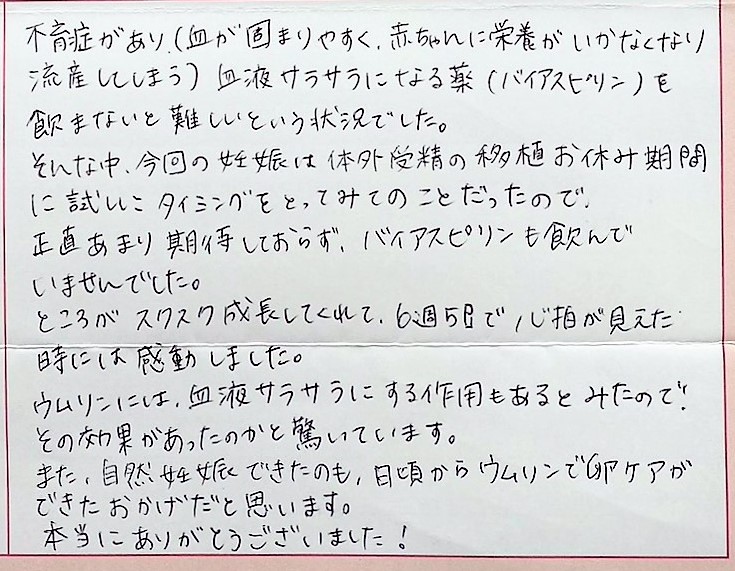 不育症があり、(血が固まりやすく、赤ちゃんに栄養がいかなくなり
流産してしまう) 血液サラサラになる薬 (バイアスピリン) を
飲まないと難しいという状況でした。
そんな中、今回の妊娠は体外受精の移植お休み期間
に試しにタイミングをとってみてのことだったので、
正直あまり期待しておらず、バイアスピリンも飲んで
いませんでした。
ところがスクスク成長してくれて、6週5日で心拍が見えた
時には感動しました。
ウムリンには、血液サラサラにする作用もあるとみたので、
その効果があったのかと驚いています。
また、自然妊娠できたのも、日頃からウムリンで卵ケアが
できたおかげだと思います。
本当にありがとうございました!